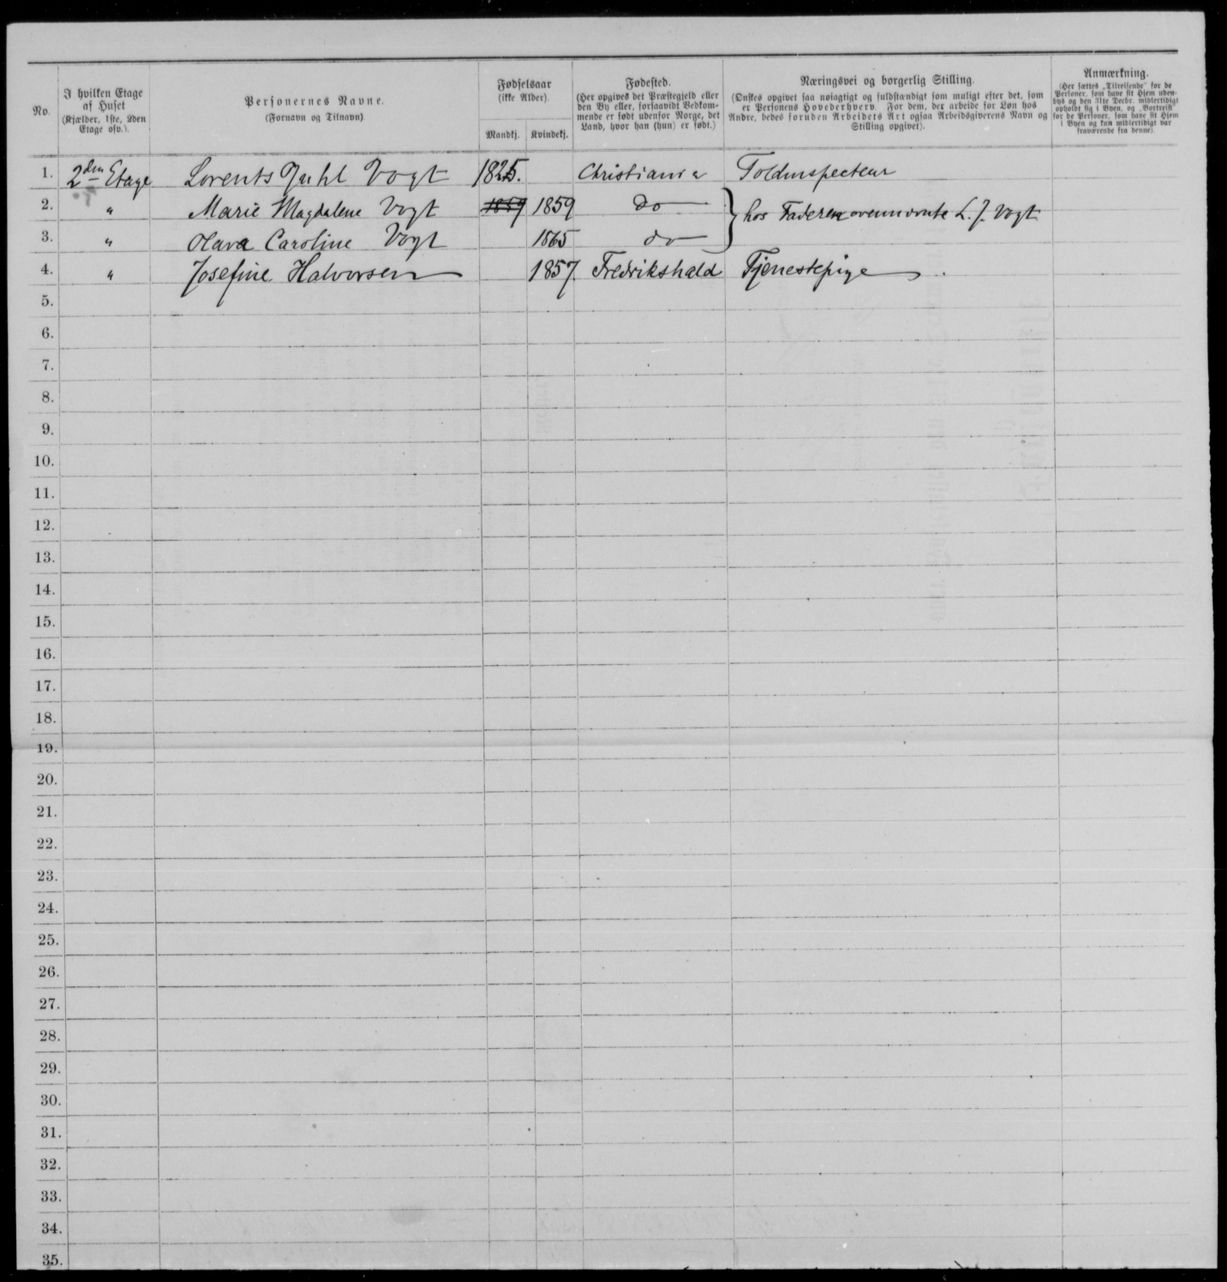 No.
I hvilken Etage
af Huset
(Kjælder, 1ste, 2den
Etage osv.).
Personernes Navne.
(Fornavn og Tilnavn)
Fødselsaar
(ikke Alder).
Mandkj.
Kvindekj.
Fødested.
(Her opgives det Præstegjeld eller
den By eller, forsaavidt Vedkom-
mende er født udenfor Norge, det
Land, hvor han (hun) er født.)
Næringsvei og borgerlig Stilling.
(Ønskes opgivet saa nøiagtigt og fuldstændigt som muligt efter det, som
er Personens Hovederhverv. For dem, der arbeide for Løn hos
Andre, bedes foruden Arbeidets Art ogsaa Arbeidsgiverens Navn og
Stilling opgivet).
Anmærkning.
(Her sættes „Tilreisende" for de
Personer, som have sit Hjem uden-
bys og den 31te Decbr. midlertidigt
opholdt sig i Byen, og „Bortreist"
for de Personer, som have sit Hjem
i Byen og kun midlertidigt var
fraværende fra denne).
1. 2den Etage Lorents Juhl Vogt 1825. Christiania Toldinspecteur
2. " Marie Magdalene Vogt 1859 1859 do hos Faderen ovennævnte L. J. Vogt
3. " Olava Caroline Vogt 1865 do
4. " Josefine Halvorsen 1857 Fredrikshald Tjenestepige
5.
6.
7.
8.
9.
10.
11.
12.
13.
14.
15.
16.
17.
18.
19.
20.
21.
22.
23.
24.
25.
26.
27.
28.
29.
30.
31.
32.
33.
34.
35.